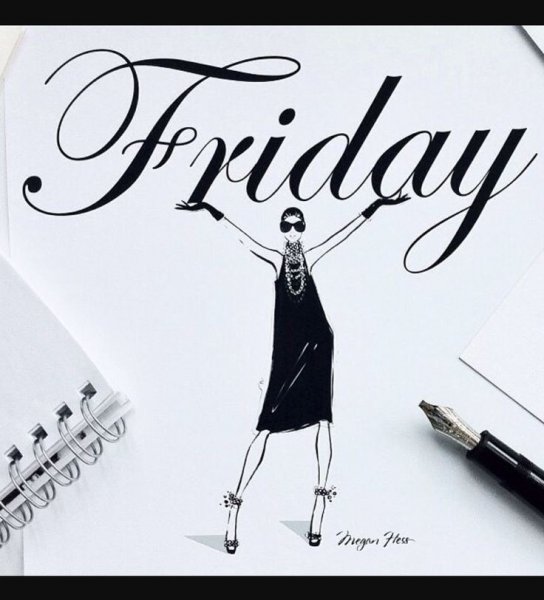 Friday
Megan Hess